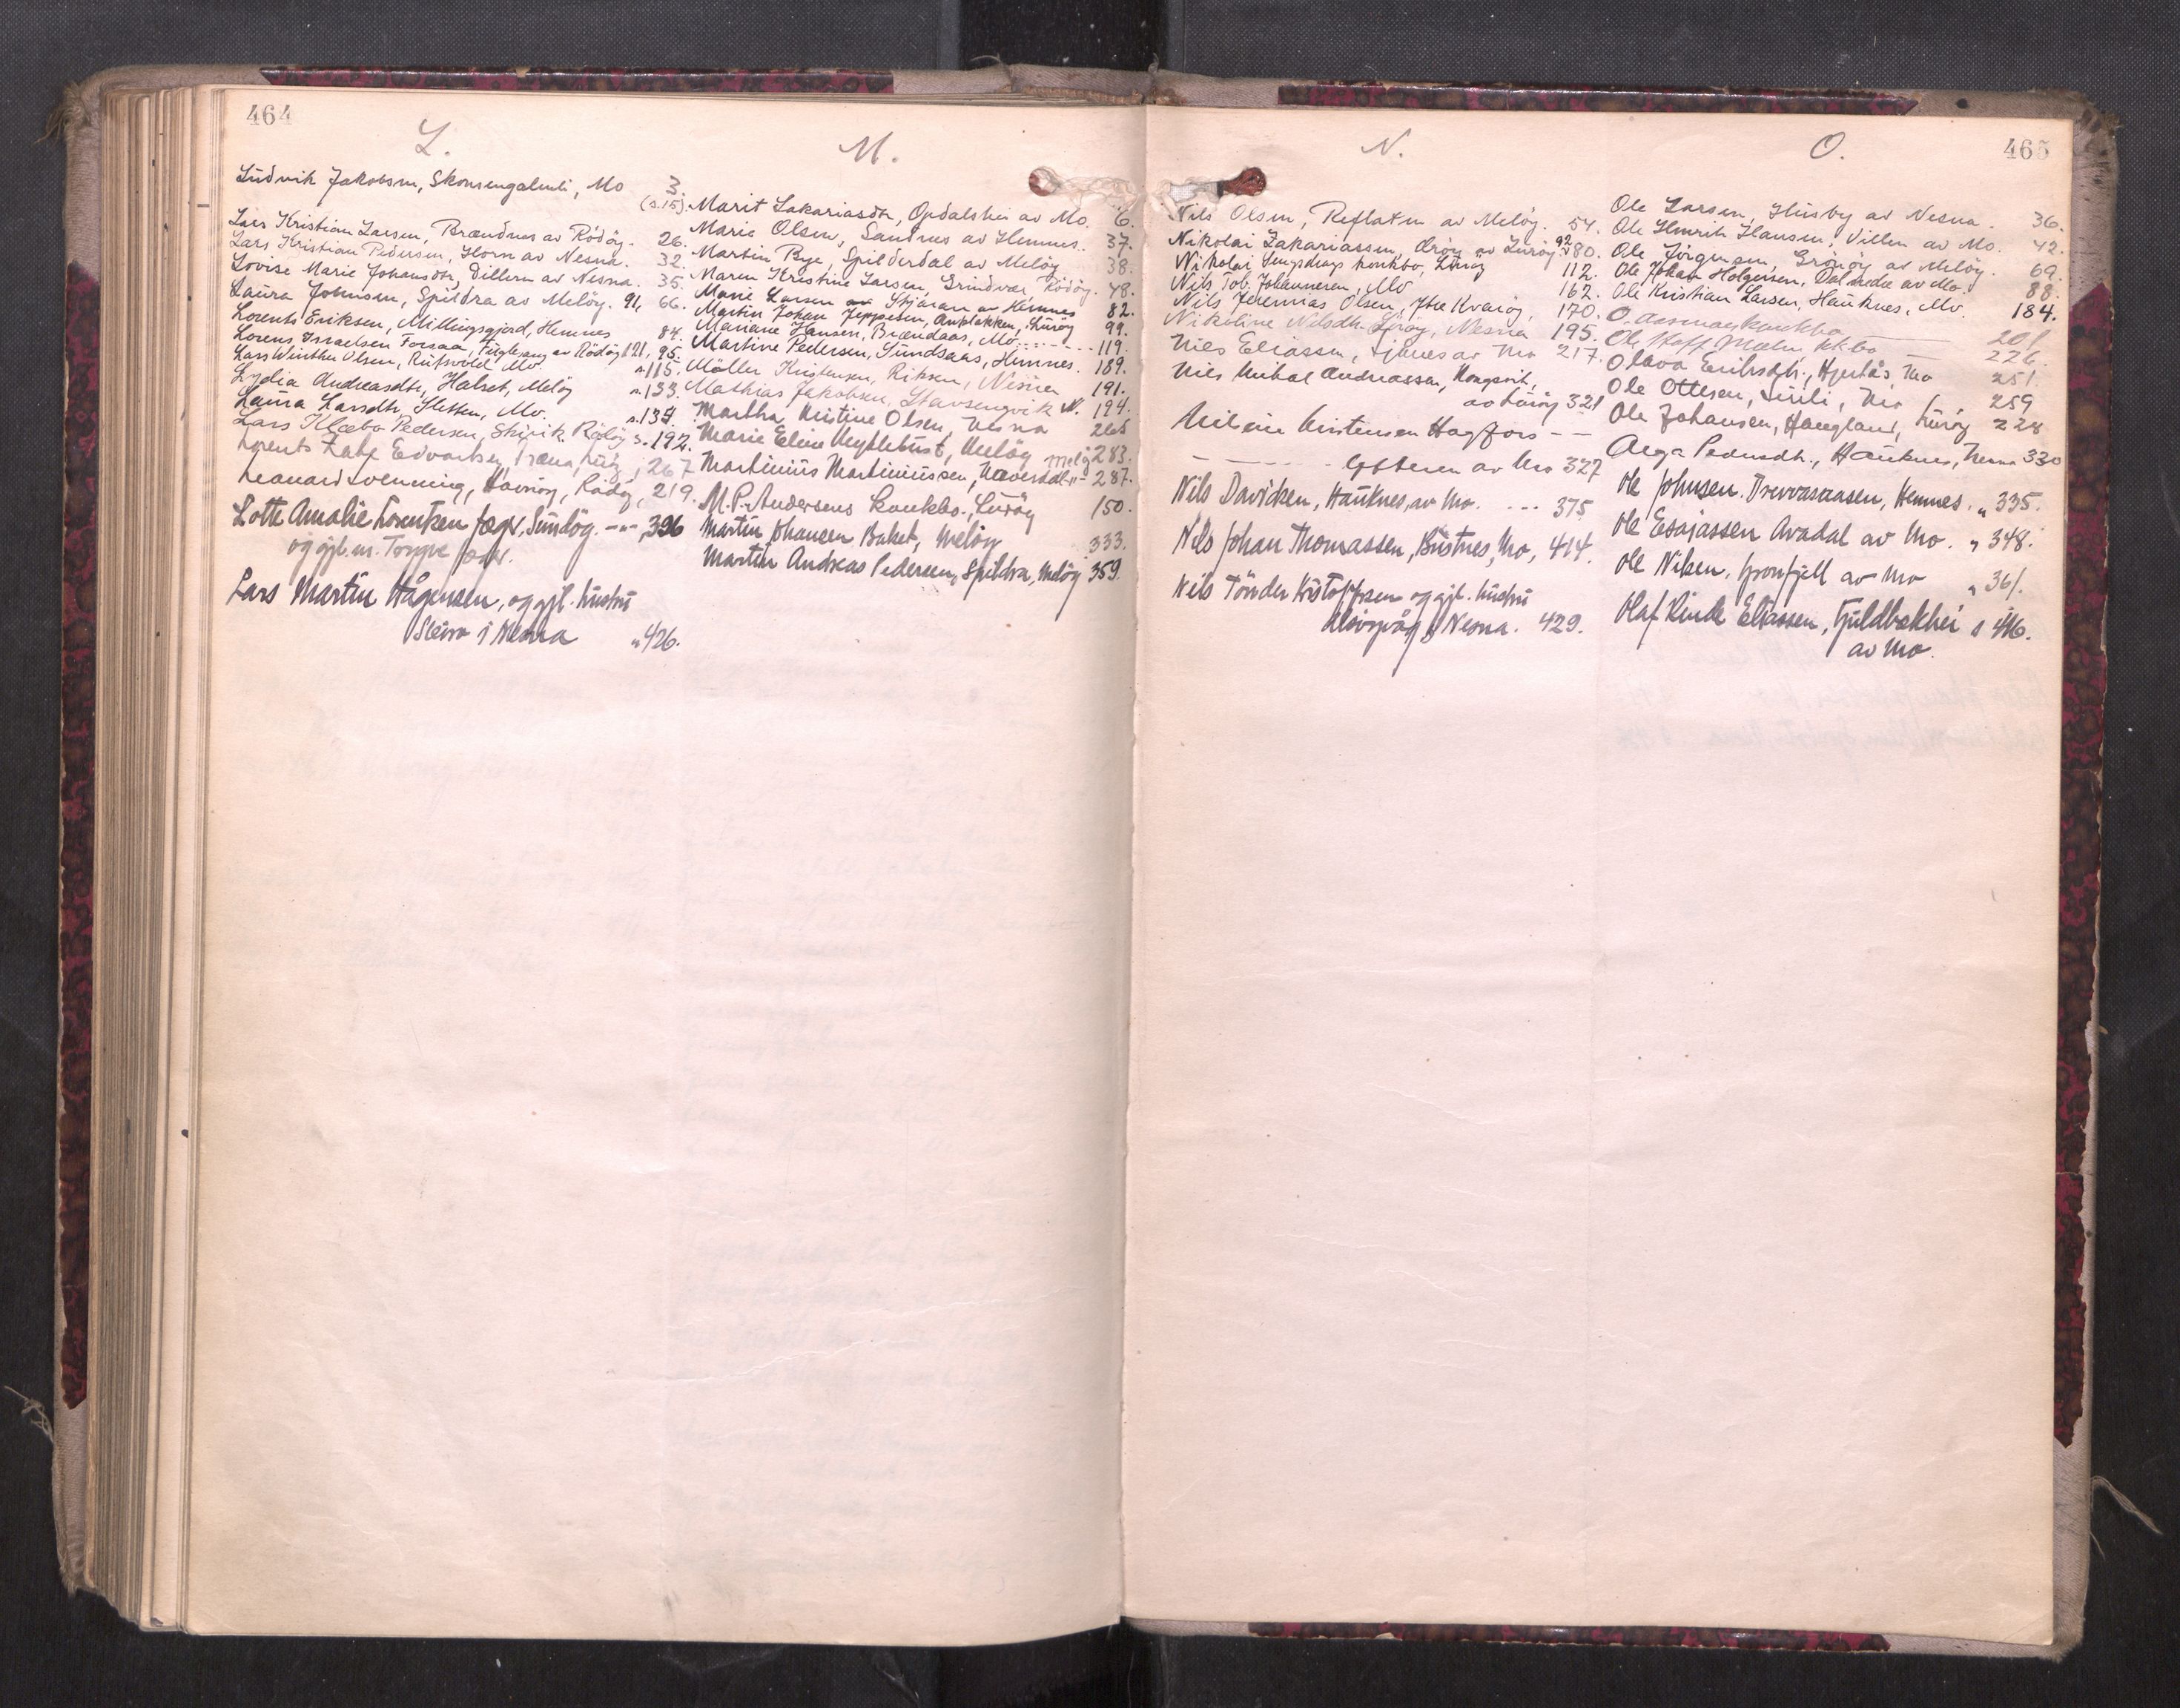 464
L.
Ludvik Jakobsen, Skonsengalmli, Mo 3.
(s.15).
Lars Kristian Larsen, Brændnes av Rödöy. 26.
Lars Kristian Pedersen, Horn av Nesna. 32.
Lovise Marie Johansdtr, Dillern av Nesna. 35.
Laura Johnsen, Spildra av Melöy. 91, 66.
Lorents Eriksen, Millingsgjord, Hemnes 84.
Lorens Israelsen Forsaa, av Rödöy 121, 95.
Lars Winther Olsen, Rutsvold Mo. s. 115.
Lydia Andreasdtr, Halset, Melöy s. 133.
Laura Larsdtr, Sletten, Mo. s. 134.
Lars Klæbo Pedersen, Skivik Rödöy s. 192.
Lorents Edvartsen, Træna, 267
Leonard Lvenning, Havnöy, Rödöy, 219.
Lotte Amalie Lorentzen fægv. Sundöy. -"- 396
og gjl. m. Torgve
Lars Martin Hågensen, og gjl. hustru
Steiro i Nesna " 426.
M.
Marit Zakariasdtr, Opdalshei av Mo. 6.
Marie Olsen, Sandnes av Hemnes. 37.
Martin Bye, Spilderdal av Melöy 38.
Maren Kristine Larsen, Grindvær Rödöy. 48.
Marie Larsen Stjåran av Hemnes 82.
Martin Johan Jeppesen, Anklakken, Luröy 99.
Mariane Hansen, Brændaas, Mo. - - - 119.
Martine Pedersen, Sundsaas, Hemnes. 189.
Möller Kristensen, Riksen, Nesna 191.
Mathias Jakobsen, Stavsengvik N. 194.
Martha Kristine Olsen, Nesna 265
Marie Eline Neverlibust, Melöy Melöy 283.
Martinius Martiniussen, Neverdal -"- 287.
M. P. Andersens konkbo., Luröy 150.
Martin Johansen Buket, Melöy 333.
Martin Andreas Pedersen, Spildra, Melöy 359.
N.
Nils Olsen, Reflaten av Melöy. 54.
Nikolai Zakariassen, av Luröy 92 180.
Nikolai konkbo, Luröy 112.
Nils Tob. Johannesen, Mo 162.
Nils Jeremias Olsen, Ytre Kvaröy, 170.
Nikoline Nilsdtr. Nesna 195.
Nils Eliassen, av Mo 217.
Nils Mikal Andreassen, Kongsvik,
av Luröy 321
Nilsine Kristensen Hagfors - -
av Mo 327
Nils Davidsen, Hauknes, av Mo. - - - 375
Nils Johan Thomassen, Bustnes, Mo, 414.
Nils Tönder Kristoffersen og gjl. hustru
Alsvosvåg i Nesna. 429.
O. 465
Ole Larsen, Husby av Nesna. 36.
Ole Henrik Hansen, Villen av Mo. 42.
Ole Jörgensen, Grönöy av Melöy. 69.
Ole Johan Holgersen, Dalsedle av Mo. 88.
Ole Kristian Larsen, Hauknes, Mo. 184.
O. Aasmoes konkbo 201.
Ole Hoff Malm kkbo - 226.
Olava Eriksdtr., Hjertås, Mo 251.
Ole Ottesen, Lirili, Mo 259
Ole Johansen, Haugland, Luröy 228
Olga Pedersdtr., Hauknes, Nesna 330
Ole Johnsen. Drevvasaasen, Hemnes. " 335.
Ole Esajassen Avadal av Mo. " 348.
Ole Nilsen, Grönfjell av Mo " 361.
Olaf Rinde Eliassen, Fjuldbækhei s 446.
av Mo.